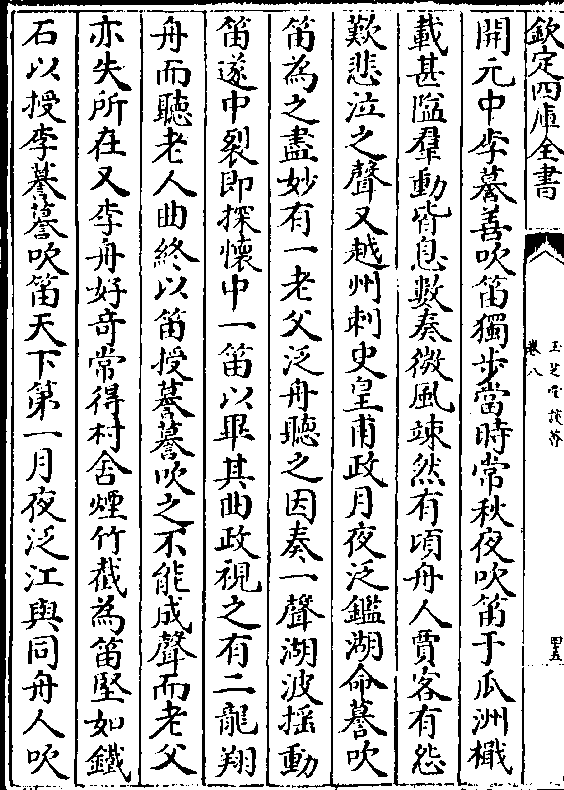 欽定四庫全書
玉芝堂談薈
卷八
四五
開元中李謩善吹笛獨步當時常秋夜吹笛于瓜洲檝
載甚隘羣動皆息數奏微風竦然有頃舟人賈客有怨
歎悲泣之聲又越州刺史皇甫政月夜泛鑑湖命謩吹
笛為之盡妙有一老父泛舟聽之因奏一聲湖波揺動
笛遂中裂即探懷中一笛以畢其曲政視之有二龍翔
舟而聽老人曲終以笛授謩謩吹之不能成聲而老父
亦失所在又李舟好奇常得村舍煙竹截為笛堅如鐵
石以授李謩謩吹笛天下第一月夜泛江與同舟人吹